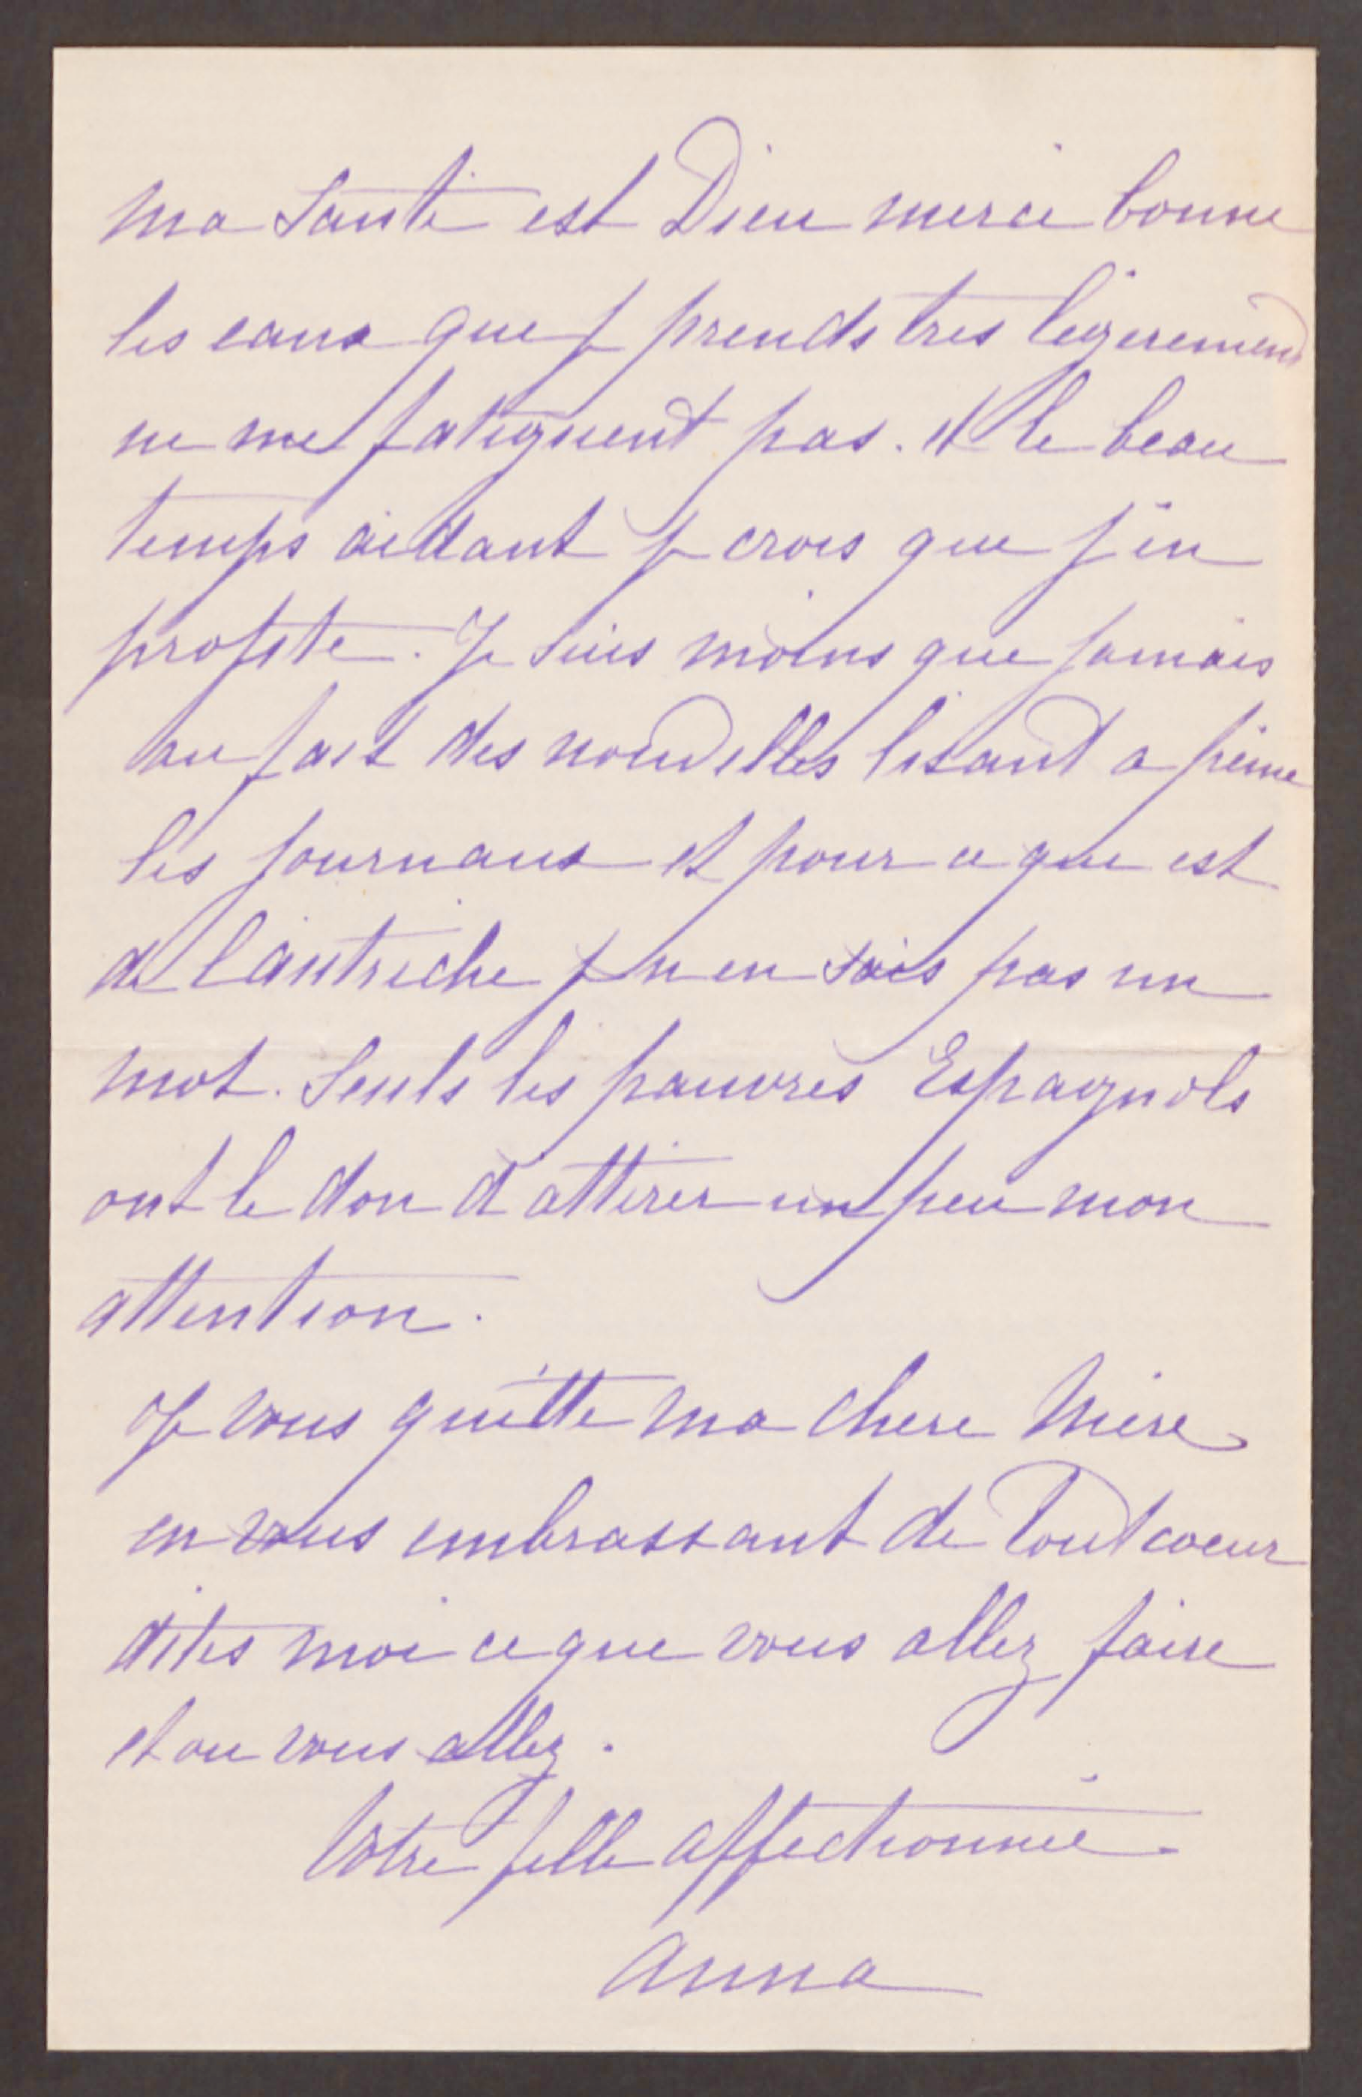 ma Santé est Dieu merci bonne
les eaux que je prends tres legerement
ne me fatiguent pas. et le beau
temps aidant je crois que j'en
profite. Je suis moins que jamais
au fait des nouvelles lisant a peine
les journaux et pour ce que est
de l'autriche je n'en sais pas un
mot. Seuls les pauvres Espagnols
ont le don d'attirer un peu mon
attention.
Je vous quitte ma chere Mere
en vous embrassant de Tout coeur
dites moi ce que vous allez faire
et ou vous allez.
Votre fille affectionnée.
Anna